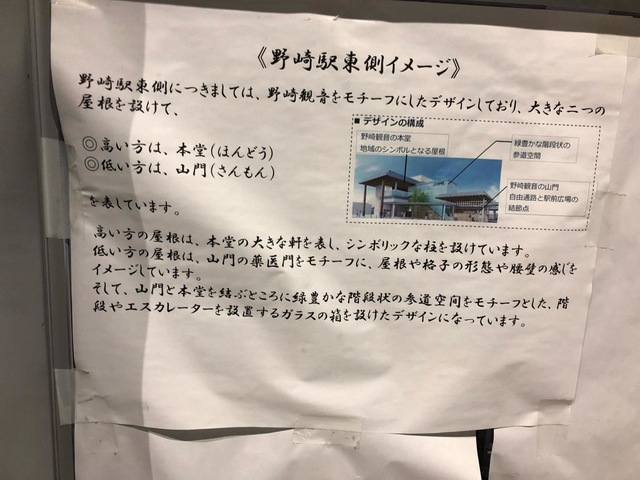 《野崎駅東側イメージ》
野崎駅東側につきましては、野崎観音をモチーフにしたデザインしており、大きな二つの
屋根を設けて、
◎高い方は、本堂(ほんどう)
◎低い方は、山門(さんもん)
■ デザインの構成
野崎観音の本堂
地域のシンボルとなる屋根
緑豊かな階段状の
参道空間
野崎観音の山門
自由通路と駅前広場の
結節点
を表しています。
高い方の屋根は、本堂の大きな軒を表し、シンボリックな柱を設けています。
低い方の屋根は、山門の薬医門をモチーフに、屋根や格子の形態や腰壁の感じを
イメージしています。
そして、山門と本堂を結ぶところに緑豊かな階段状の参道空間をモチーフとした、階
段やエスカレーターを設置するガラスの箱を設けたデザインになっています。